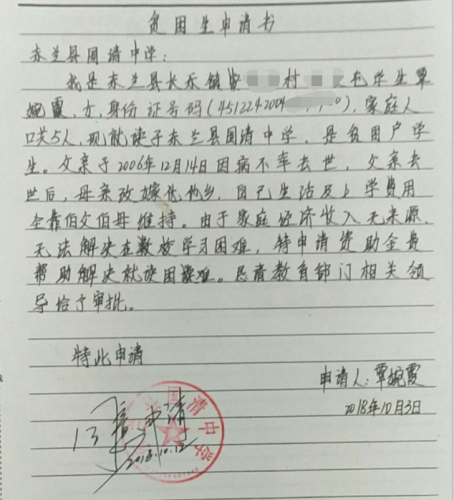 贫困生申请书
东兰县国清中学：
我是东兰县长乐镇 村 屯学生覃
婉霞，女，身份证号码（451224200 ），家庭人
口共5人，现就读于东兰县国清中学，是贫困户学
生。父亲于2006年12月14日因病不幸去世，父亲去
世后，母亲改嫁他乡，自己生活及上学费用
全靠伯父伯母维持。由于家庭经济收入无来源，
无法解决在校学习困难，特申请资助金费
帮助解决就读困难。恳请教育部门相关领
导给予审批。
特此申请
申请人：覃婉霞
2018年10月3日
申请
2018.10.12
清中学